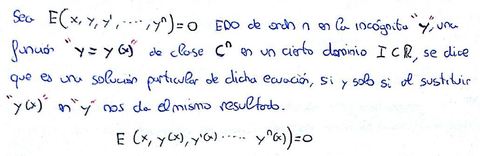 Sea E(x, y, y', ...., yⁿ)=0 EDO de orden n en la incógnita "y", una
función "y = y(x)" de clase Cⁿ en un cierto dominio I⊂ℝ, se dice
que es una solución particular de dicha ecuación, si y solo si al sustituir
"y(x)" en "y" nos da el mismo resultado.
E (x, y(x), y'(x) ..... yⁿ(x))=0